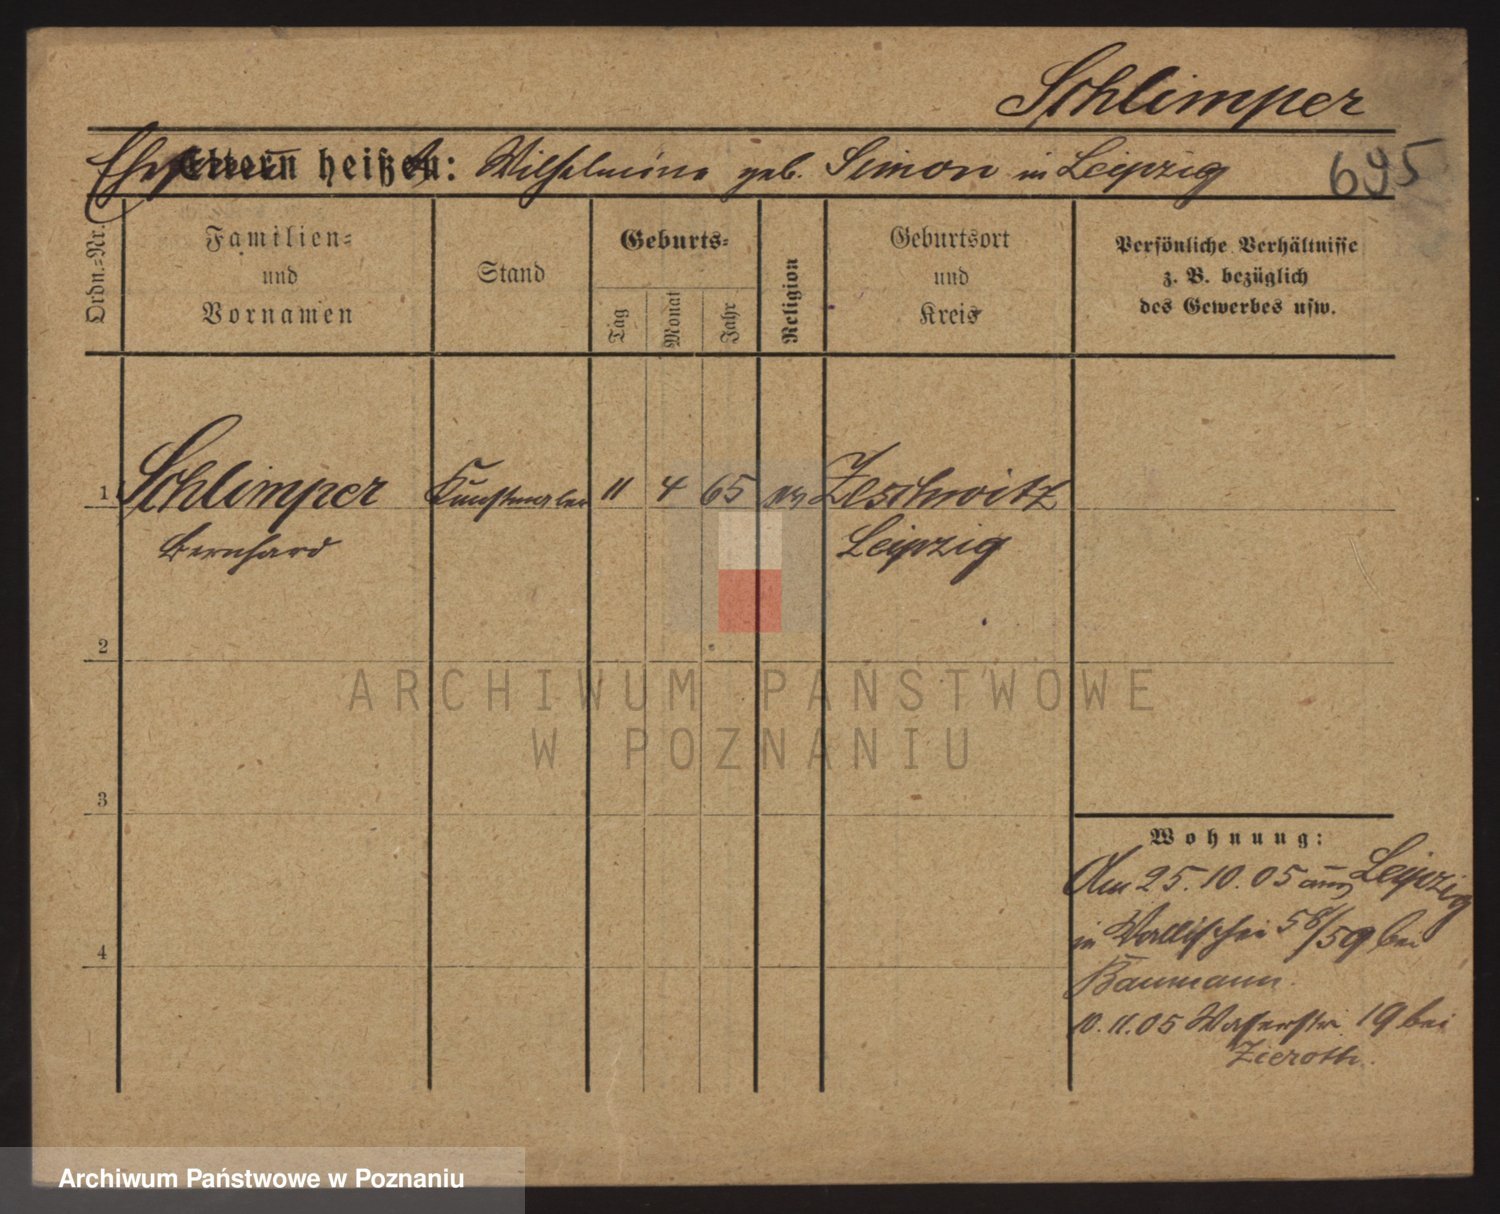 Schlimper
Eltern heißen: Wilhelmine geb. Simon in Leipzig
695
Ordn.-Nr.
Familien-
und
Vornamen
Stand
Geburts-
Tag
Monat
Jahr
Religion
Geburtsort
und
Kreis
Persönliche Verhältnisse
z. B. bezüglich
des Gewerbes usw.
1 Schlimper Kunstmaler 11 4 65 Zeschwitz
Bernhard Leipzig
2
ARCHIWUM PAŃSTWOWE
W POZNANIU
3
Wohnung:
Am 25.10.05 aus Leipzig
in Wallischei 58/59 bei
Baumann.
4
10.11.05 Wasserstr. 19 bei
Zieroth.
Archiwum Państwowe w Poznaniu